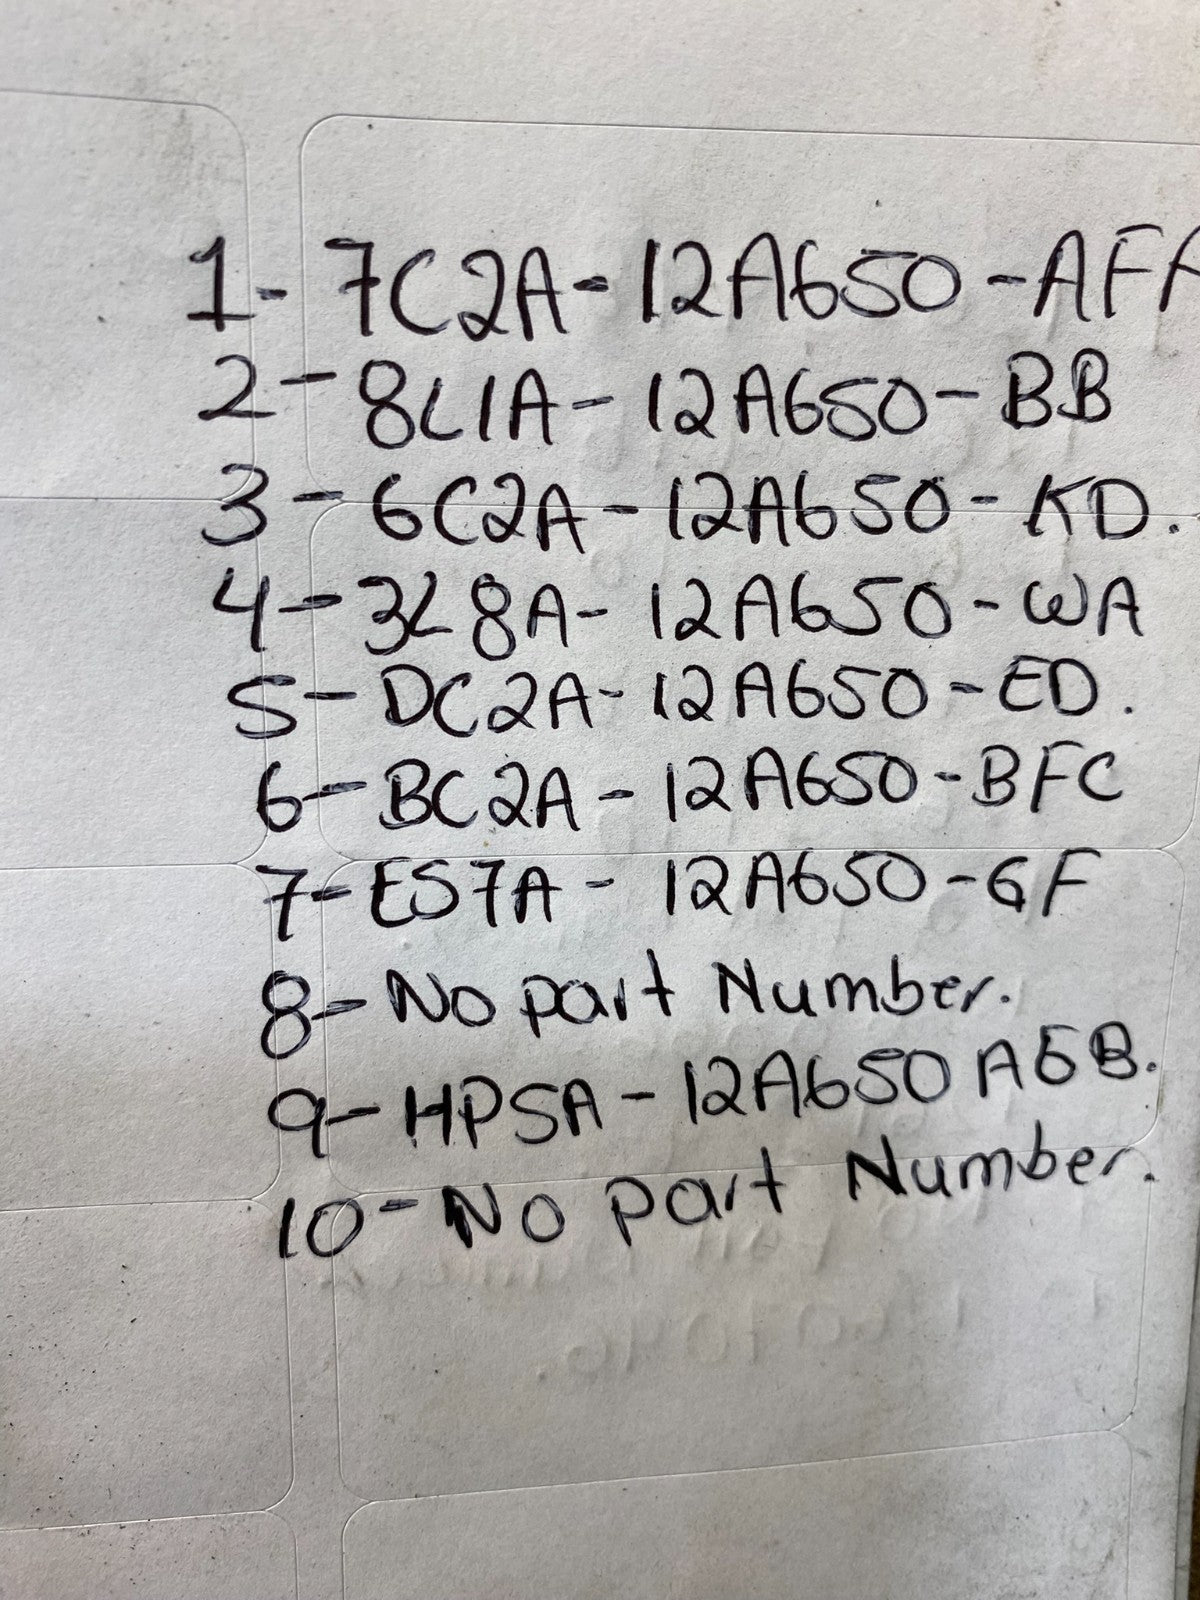 1- 7C2A-12A650-AFA
2- 8L1A-12A650-BB
3- 6C2A-12A650-KD.
4- 3L8A-12A650-WA
5- DC2A-12A650-ED.
6- BC2A-12A650-BFC
7- ES7A-12A650-GF
8- No part Number.
9- HPSA-12A650 AGB.
10- No part Number.